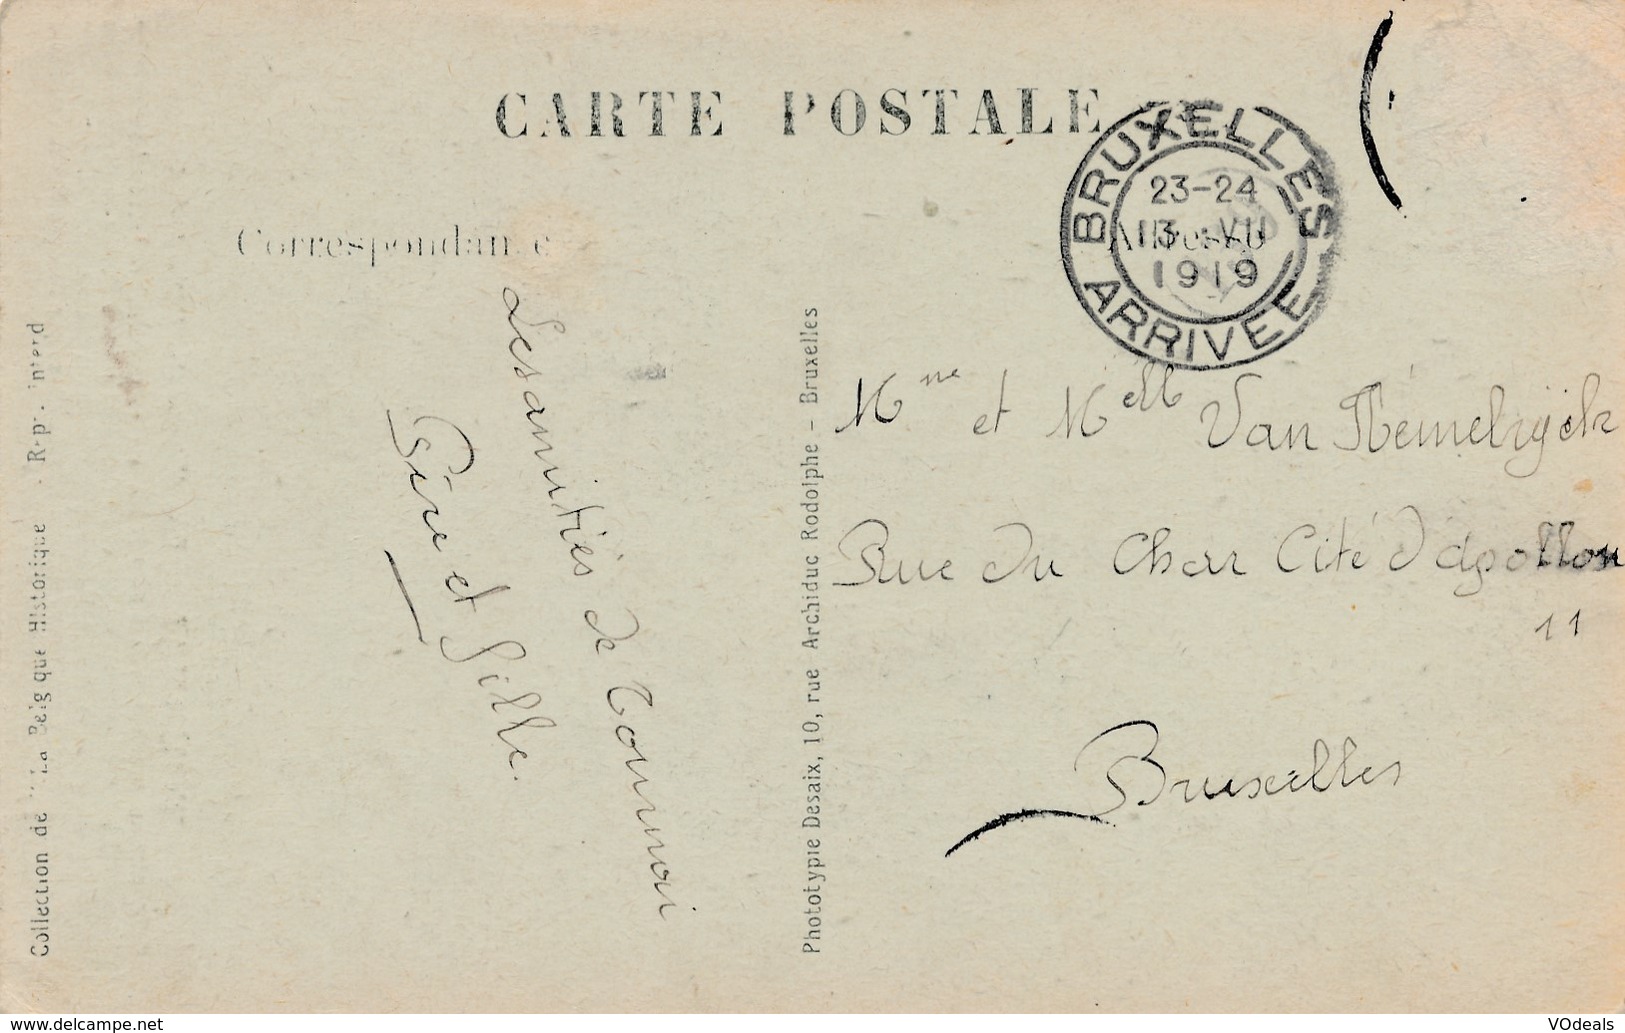 CARTE POSTALE
BRUXELLES
23-24
13 VII
1919
ARRIVEE
Correspondance
Adresse
Collection de "La Belgique Historique
Phototypie Desaix, 10, rue Archiduc Rodolphe - Bruxelles
Les amitiés de Tournai
et
Mme et Mell Van
Rue du Char Cité d'apollon
11
Bruxelles
www.delcampe.net
VOdeals